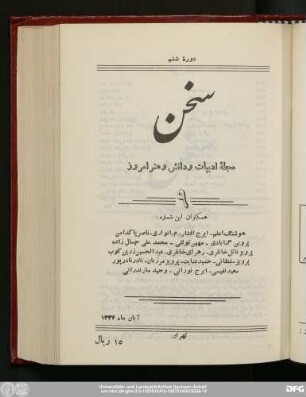 دورهٔ ششم
سخن
مجلهٔ ادبیات و دانش و هنر امروز
۹
همکاران این شماره:
هوشنگ اعلم. ایرج افشار. م. انواری. ناصر پاکدامن
پروین گنابادی - مهین تولّلی - محمد علی جمال زاده
پرویز ناتل خانلری. زهرای خانلری. عبدالحسین زرین کوب
حمید عنایت. پرویز مرزبان. نادر نادرپور
سعید نفیسی. ایرج نورائی - وحید مازندرانی
آبان ماه ۱۳۳۴
تهران
۱۵ ریال
Universitäts- und Landesbibliothek Sachsen-Anhalt